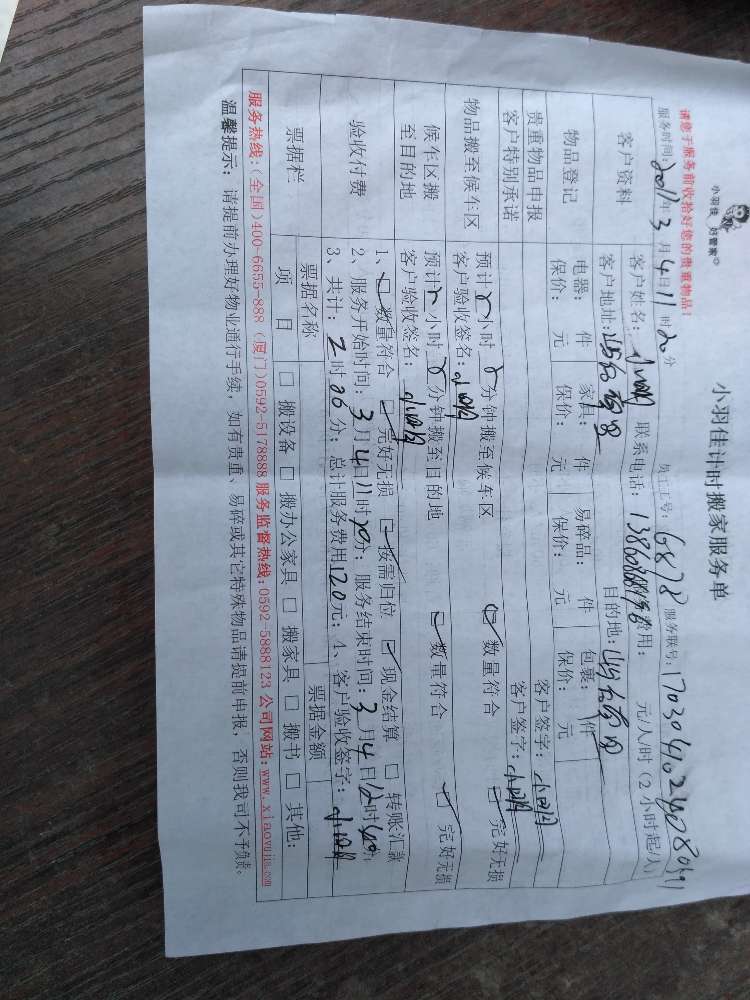 小羽佳 好管家
小羽佳计时搬家服务单
请您于服务前收拾好您的贵重物品！
员工工号：6878 服务账号：
服务时间：2017年3月4日11时20分
客户资料 客户姓名： 联系电话： 费用： 元/人/时（2小时起/人）
客户地址： 目的地：
物品登记 电器： 件 家具： 件 易碎品： 件 包裹： 件
保价： 元 保价： 元 保价： 元 保价： 元
贵重物品申报 客户签字：
客户特别承诺 客户签字：
物品搬至候车区 预计 小时 分钟搬至候车区 数量符合 完好无损
客户验收签名：
候车区搬至目的地 预计 小时 分钟搬至目的地 数量符合 完好无损
客户验收签名：
验收付费 1、数量符合 完好无损 按需归位 现金结算 转账汇款
2、服务开始时间：3月4日11时20分；服务结束时间：3月4日12时 分；
3、共计：2时06分；总计服务费用120元；4、客户验收签字：
票据栏 票据名称 票据金额
项目 搬设备 搬办公家具 搬家具 搬书 其他：
服务热线：（全国）400-6655-888（厦门）0592-5178888 服务监督热线：0592-5888123 公司网站：www.xiaoyujia.com
温馨提示：请提前办理好物业通行手续，如有贵重、易碎或其它特殊物品请提前申报，否则我司不予负责。